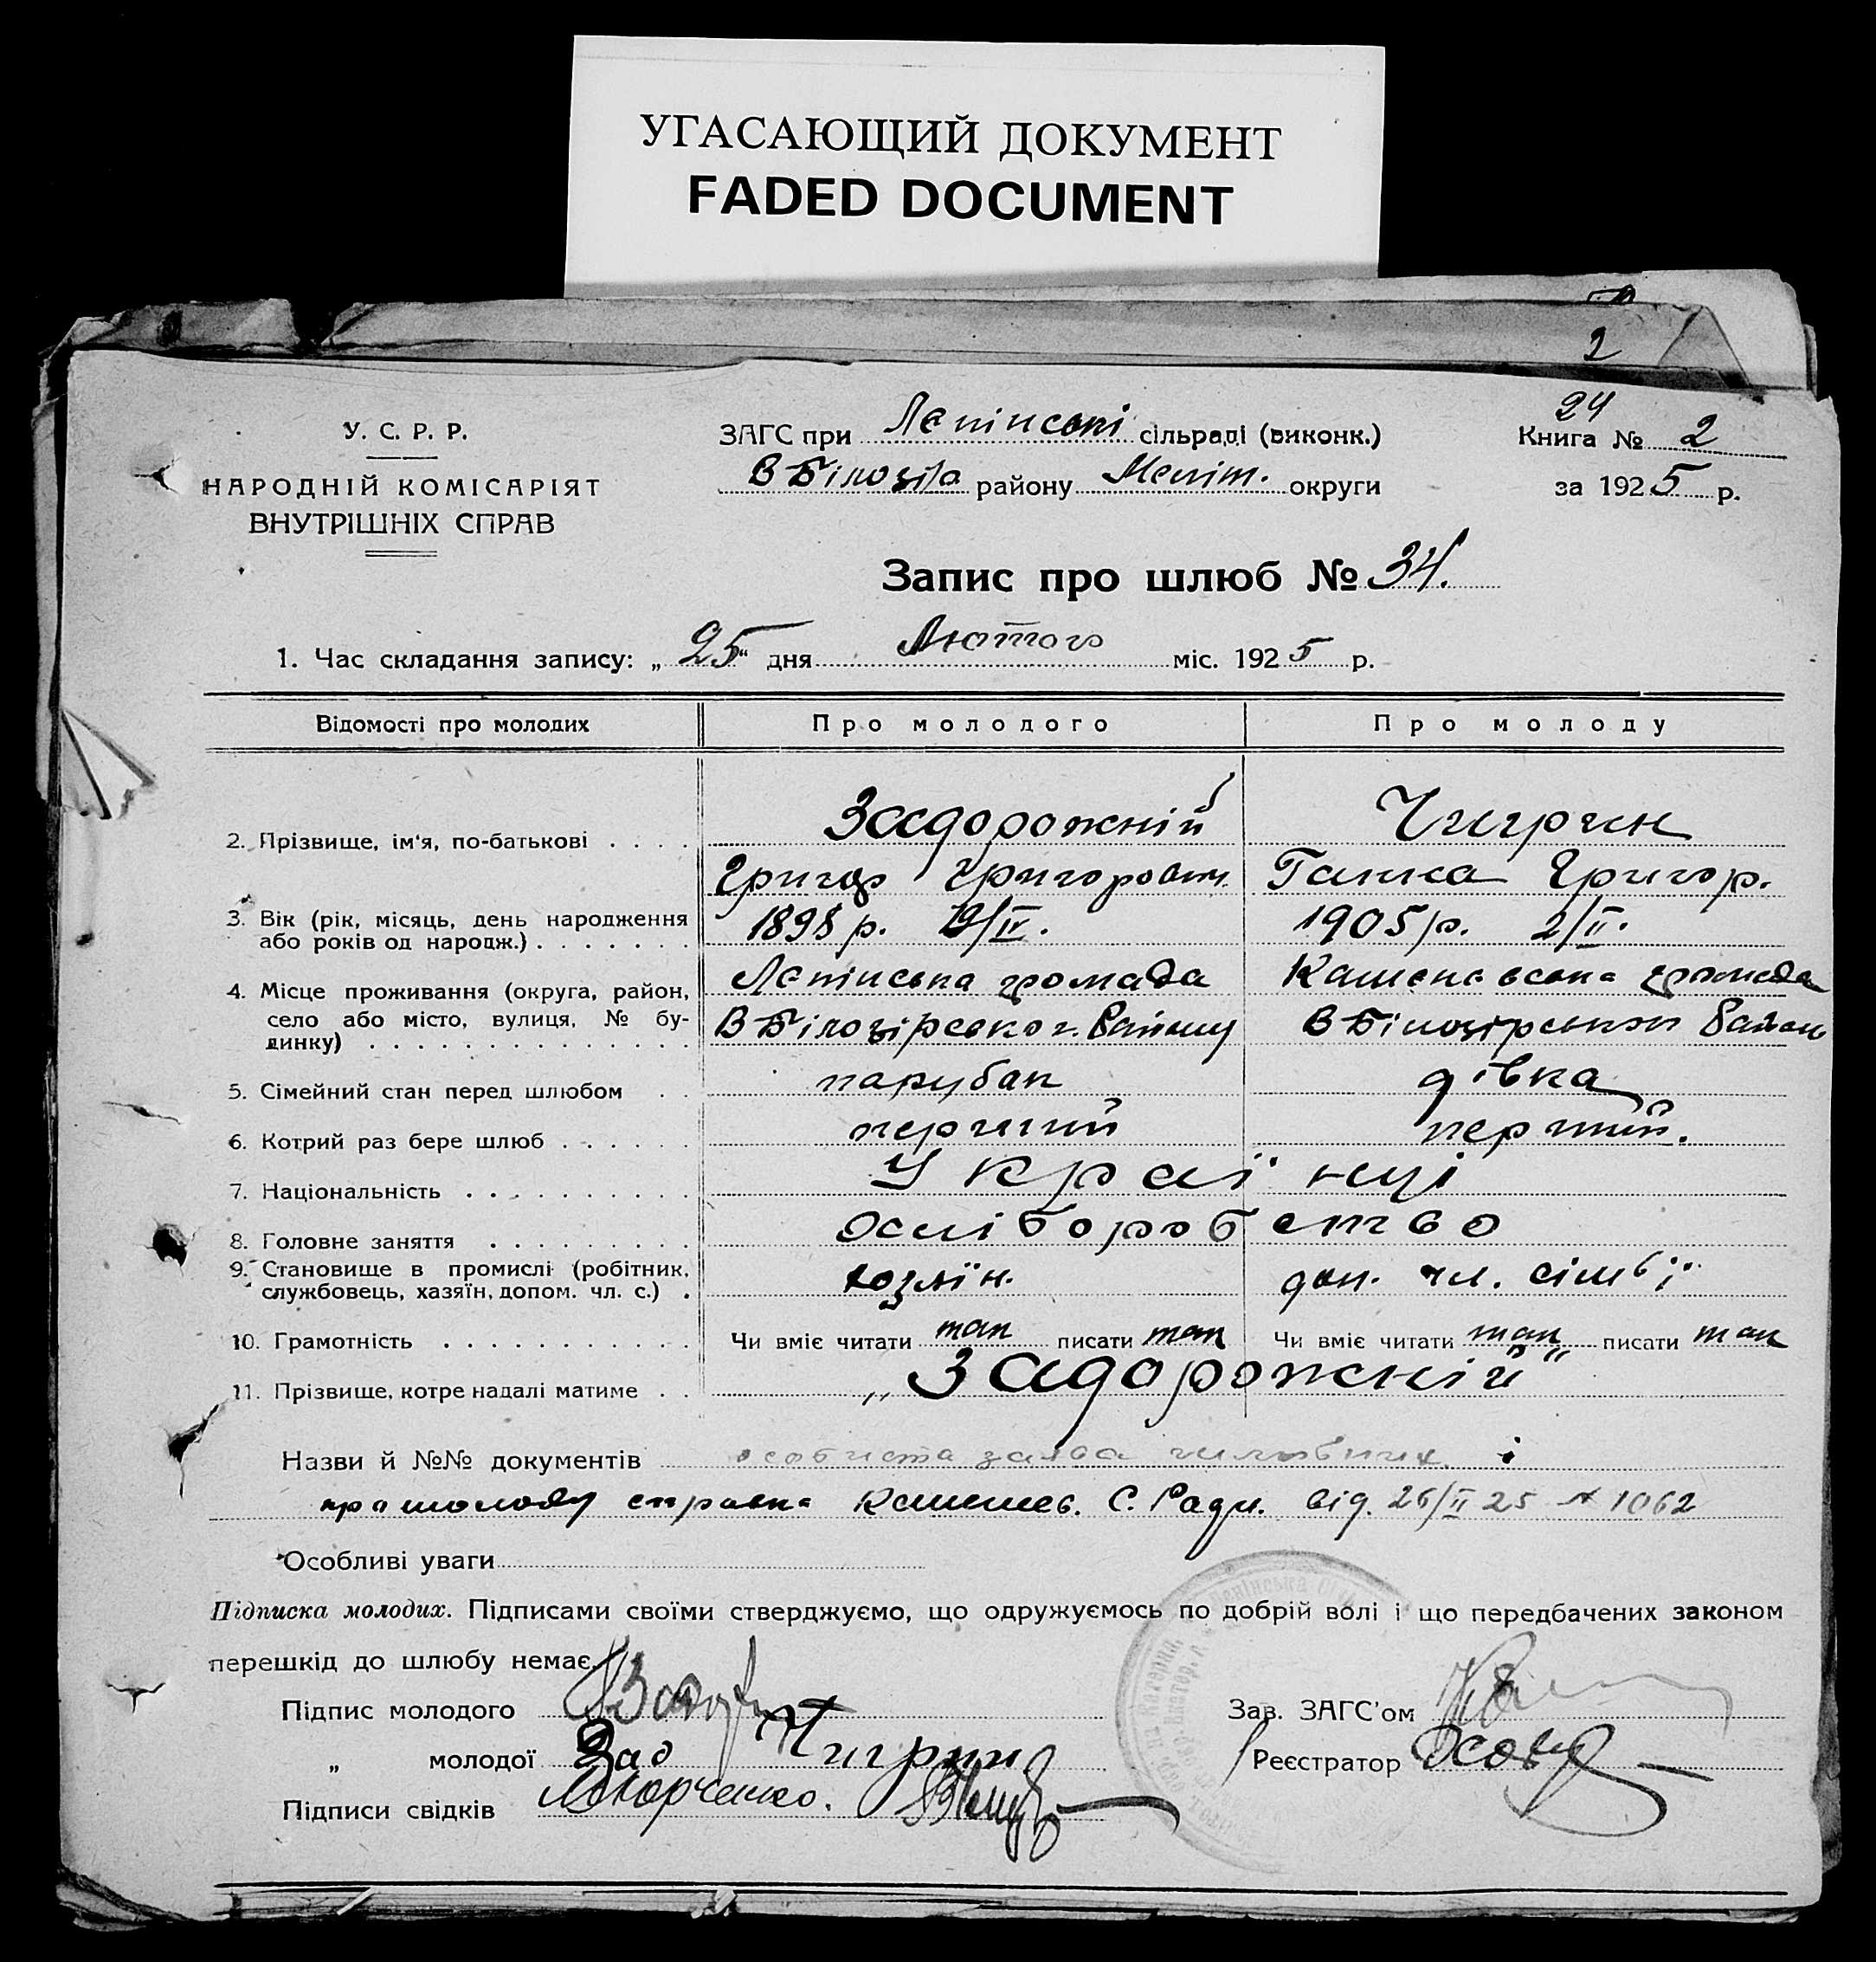 УГАСАЮЩИЙ ДОКУМЕНТ
FADED DOCUMENT
2
24
У. С. Р. Р.
НАРОДНІЙ КОМІСАРІЯТ
ВНУТРІШНІХ СПРАВ
ЗАГС при Лепінські сільраді (виконк.)
В Білозір району Меліт. округи
Книга № 2
за 1925 р.
Запис про шлюб № 34.
1. Час складання запису: „ 25 “ дня Лютого міс. 1925 р.
Відомості про молодих Про молодого Про молоду
2. Прізвище, ім'я, по-батькові . . . . Задорожній Чигрин
Григор Григорович Ганна Григор.
3. Вік (рік, місяць, день народження 1898 р. /IV. 1905 р. 2/II.
або років од народж.) . . . . . . .
4. Місце проживання (округа, район, Лепінська громада громада
село або місто, вулиця, № бу- В Білозірськог. Району В Білозірськог Району
динку) . . . . . . . . . . . . . .
5. Сімейний стан перед шлюбом . . парубак дівка
6. Котрий раз бере шлюб . . . . . . перший перший.
7. Національність . . . . . . . . . . Українці
8. Головне заняття . . . . . . . . . Хліборобство
9. Становище в промислі (робітник, хозяїн. доп. чл. сімьї
службовець, хазяїн, допом. чл. с.) .
10. Грамотність . . . . . . . . . . . Чи вміє читати так писати так Чи вміє читати так писати так
11. Прізвище, котре надалі матиме . . „Задорожній“
Назви й №№ документів особиста заява і
про молоду справка Каменев. С. Ради. від. 26/II 25 № 1062
Особливі уваги
Підписка молодих. Підписами своїми стверджуємо, що одружуємось по добрій волі і що передбачених законом
перешкід до шлюбу немає.
Підпис молодого
Зав. ЗАГС'ом
„ молодої Зад Чигрин
Реєстратор
Підписи свідків